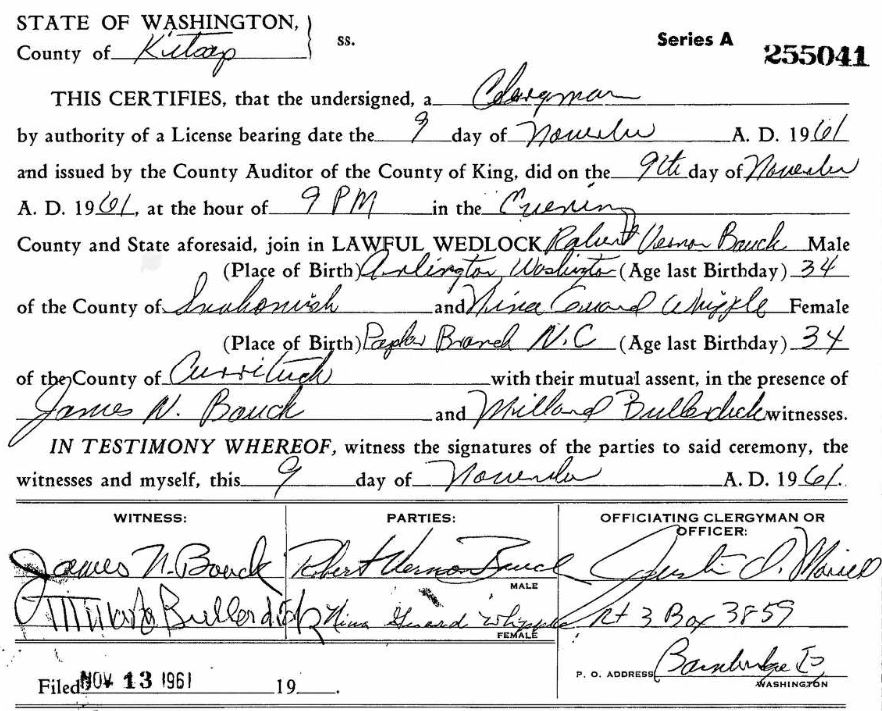 STATE OF WASHINGTON,
County of Kitsap ss. Series A 255041
THIS CERTIFIES, that the undersigned, a Clergyman
by authority of a License bearing date the 9 day of November A. D. 1961
and issued by the County Auditor of the County of King, did on the 9th day of November
A. D. 1961, at the hour of 9 PM in the Evening
County and State aforesaid, join in LAWFUL WEDLOCK Robert Vernon Bauck Male
(Place of Birth) Arlington, Washington (Age last Birthday) 34
of the County of Snohomish and Nina Whipple Female
(Place of Birth) Poplar Branch N.C (Age last Birthday) 34
of the County of Currituck with their mutual assent, in the presence of
James N. Bauck and Millard Bullerdick witnesses.
IN TESTIMONY WHEREOF, witness the signatures of the parties to said ceremony, the
witnesses and myself, this 9 day of November A. D. 1961.
WITNESS: PARTIES: OFFICIATING CLERGYMAN OR OFFICER:
James N. Bauck Robert Vernon Bauck
MALE
Bullerdick Nina Whipple Rt 3 Box 3859
FEMALE
P. O. ADDRESS Bainbridge Is
WASHINGTON
Filed NOV 13 1961 19 .